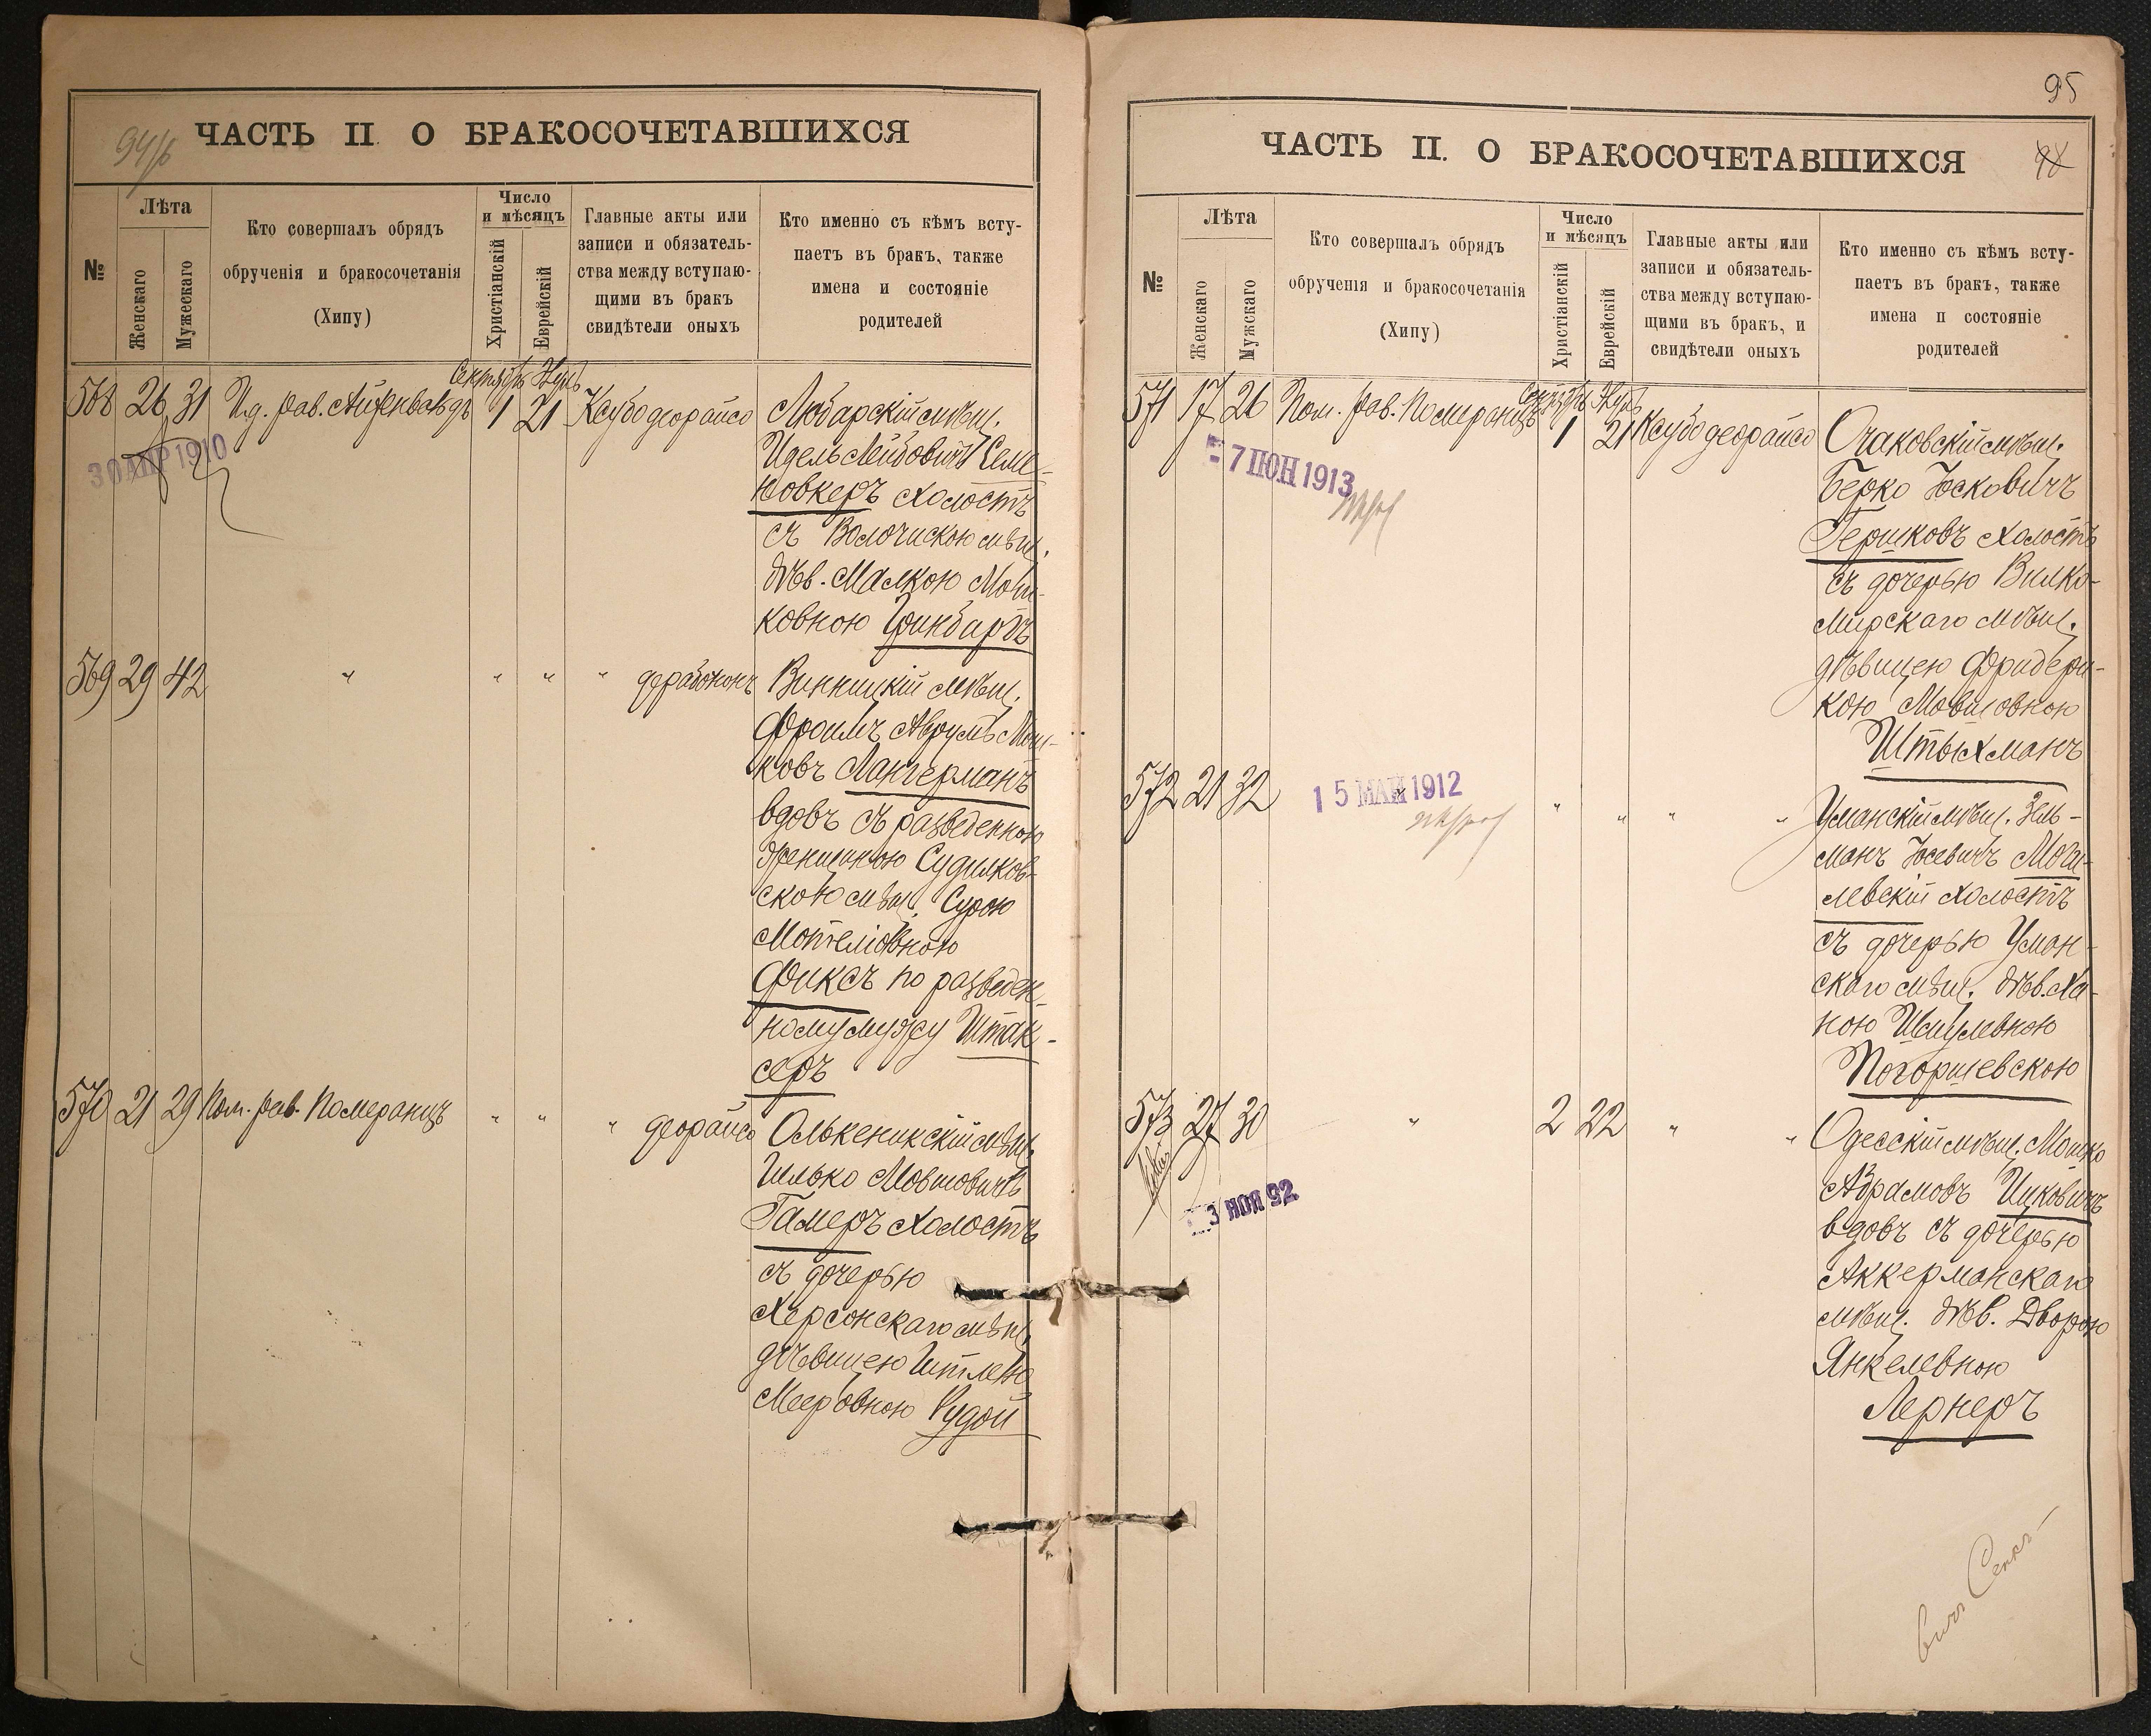 94/б
ЧАСТЬ II. О БРАКОСОЧЕТАВШИХСЯ
№
Лѣта
Женскаго
Мужескаго
Кто совершалъ обрядъ
обрученія и бракосочетанія
(Хипу)
Число
и мѣсяцъ
Христіанскій
Еврейскій
Главные акты или
записи и обязатель-
ства между вступаю-
щими въ бракъ
свидѣтели оныхъ
Кто именно съ кѣмъ всту-
паетъ въ бракъ, также
имена и состояніе
родителей
Сентябрь
568 26 31 И.д. рав. Айзенвальдъ 1 21 Ксубо деорайсо Любарскій мѣщ.
30 АПР 1910
Идель Лейбовичъ Семе-
новкеръ холостъ
съ Волочискою мѣщ.
дѣв. Малкою Мош-
ковною Гринбартъ
569 29 42 " " " " дерабононъ Винницкій мѣщ.
Фроимъ Аврумъ Мош-
ковъ Лангерманъ
вдовъ съ разведенною
женщиною Судилков-
скою мѣщ. Сурою
Мотеліовною
Фиксъ по разведен-
ному мужу Штак-
серъ
570 21 29 Пом. рав. Померанцъ " " " деорайсо Олькеникскій мѣщ.
Илько Мовшовичъ
Гамеръ холостъ
съ дочерью
Херсонскаго мѣщ.
дѣвицею Итлею
Мееровною Рудой
95
ЧАСТЬ II. О БРАКОСОЧЕТАВШИХСЯ
№
Лѣта
Женскаго
Мужскаго
Кто совершалъ обрядъ
обрученія и бракосочетанія
(Хипу)
Число
и мѣсяцъ
Христіанскій
Еврейскій
Главные акты или
записи и обязатель-
ства между вступаю-
щими въ бракъ, и
свидѣтели оныхъ
Кто именно съ кѣмъ всту-
паетъ въ бракъ, также
имена и состояніе
родителей
571 17 26 Пом. рав. Померанцъ 1 21 Ксубо деорайсо Очаковскій мѣщ.
7 ІЮН 1913
Берко Іосковичъ
Гершковъ холостъ
съ дочерью Вилко-
мирскаго мѣщ.
дѣвицею Фридери-
кою Мовшовною
Штыхманъ
572 21 32 " " " " " Уманскій мѣщ. Зель-
15 МАЙ 1912
манъ Іосевичъ Моги-
левскій холостъ
съ дочерью Уман-
скаго мѣщ. дѣв. Ха-
ною Шмулевною
Погоришевскою
573 27 30 " 2 22 " " Одесскій мѣщ. Мошко
3 НОЯ 92
Абрамовъ Ицковичъ
вдовъ съ дочерью
Аккерманскаго
мѣщ. дѣв. Дворою
Янкелевною
Лернеръ